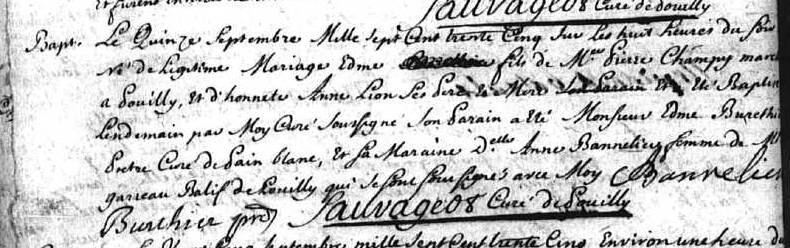 Sauvageot Curé de pouilly
Bapt. Le Quinze Septembre Mille sept Cent trente Cinq sur les huit heures du soir
né de legitime Mariage Edme fils de Mre Pierre Champy marc
a pouilly, et d'honnete Anne Lion ses pere et Mere Son parain et été Baptisé
Lendemain par Moy Curé soussigné Son parain a été Monsieur Edme Burethier
pretre Curé de pain blanc, et sa Maraine Delle Anne Bannelier femme de Mr
garreau Balif de pouilly qui se sont soussignés avec Moy Bannelier
Burthier Sauvageot Curé de Pouilly
septembre mille sept Cent trente Cinq Environ une heure du